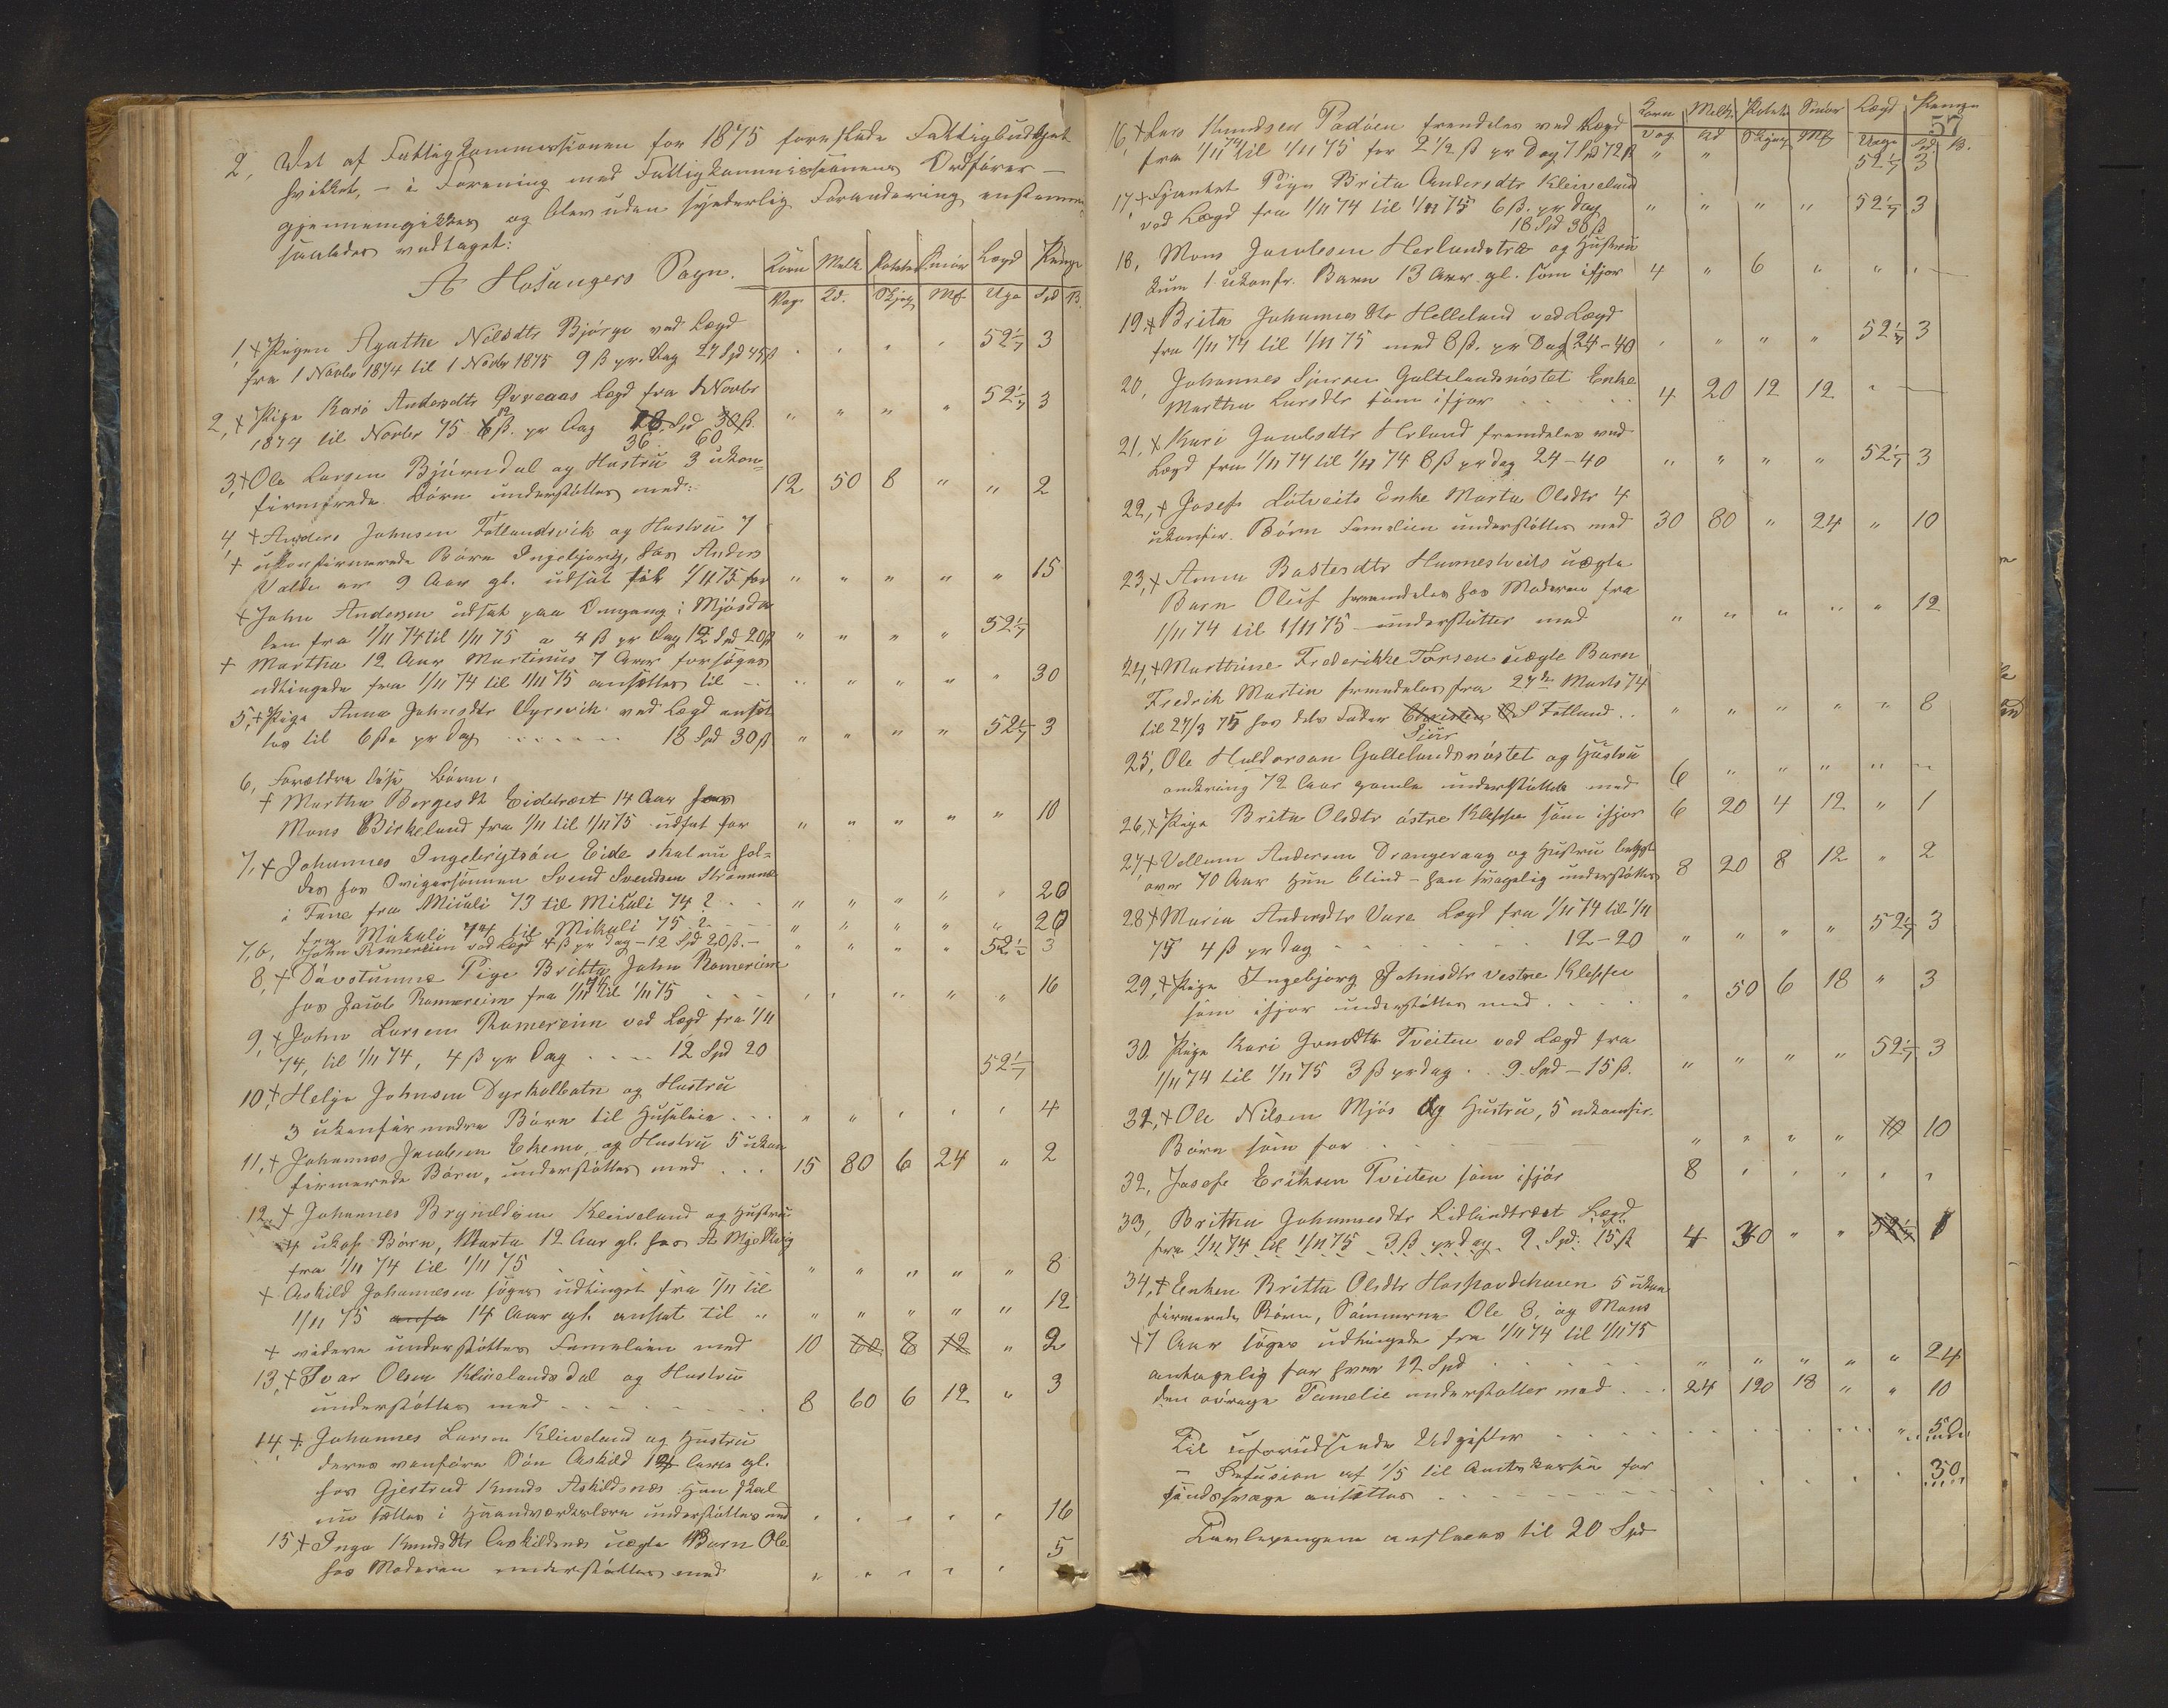 2, Det af Fattigkommissionen for 1875 foreslaaede Fattigbudget
hvilket, – i Forening med Fattigkommissionens Ordfører –
gjennemgikkes og blev uden synderlig Forandring enstemmig
saaledes vedtaget:
A Hosangers Sogn.
Korn Melk Poteter Smør Lægd Penge
Vog Kd. Skjep Mk Uge Spd ß.
1, + Pigen Agathe Nilsdtr Bjørge ved Lægd
fra 1 Novbr 1874 til 1 Novbr 1875 9 ß pr. Dag 27 Spd 45 ß " " " " 52 1/7 3
2, + Pige Kari Andersdtr Lægd fra 1 Novbr
1874 til Novbr 75 12 ß. pr Dag 18 Spd 30 ß. " " " " 52 1/7 3
36 60
3, + Ole Larsen Bjørndal og Hustru 3 ukon=
firmerede Børn understøttes med 12 50 8 " " 2
4, + Anders Johnsen Fotlandsvik og Hustru 7
+ ukonfirmerede Børn Ingebjørg, hos Anders
Valde er 9 Aar gl. udsat til 1/11 75 for " " " " " 15
+ John Andersen udsat paa Omgang i Mjøsda
len fra 1/11 74 til 1/11 75 a 4 ß pr Dag 12 Spd 20 ß " " " " 52 1/7
+ Martha 12 Aar Martinus 7 Aar forsøges
udtingede fra 1/11 74 til 1/11 75 ansættes til " " " " " 30
5, + Pige Anna Johnsdtr Dyrvik ved Lægd ansæt
tes til 6 ß pr Dag 18 Spd 30 ß " " " " 52 1/7 3
6, Forældre løse Børn:
+ Martha Bergesdtr Eidetræet 14 Aar hos
Mons Birkeland fra 1/11 til 1/11 75 udsat for " " " " " 10
7, + Johannes Ingebrigtsøn Eide skal nu hol=
des hos Svend Svendsen Strømsnes
i Fane fra Mikali 73 til Mikali 74 2 " " " " " 20
fra Mikali 74 til Mikali 75 2 " " " " " 20
7, b, John Romereim ved Lægd 4 ß pr Dag – 12 Spd 20 ß. – " " " " 52 1/7 3
8, + Døvstumme Pige Brihta John Romereim
hos Jacob Romereim fra 1/11 74 til 1/11 75 " " " " " 16
9, + John Larsen Romereim ved Lægd fra 1/11
74, til 1/11 74, 4 ß pr Dag 12 Spd 20 52 1/7
10, + Helge Johnsen Dyrkolbotn og Hustru
3 ukonfirmerede Børn til Husleie " " " " " 4
11, + Johannes Jacobsen Ekemo og Hustru 5 ukon
firmerede Børn, understøttes med 15 80 6 24 " 2
12, + Johannes Brynildsen Kleiveland og Hustru
4 ukof. Børn, Marta 12 Aar gl. hos A Mjøs
fra 1/11 74 til 1/11 75 " " " " " 8
+ Askild Johannesen søges udtinget fra 1/11 til
1/11 75 ansa 14 Aar gl. ansat til " " " " " 12
+ videre understøttes Familien med 10 60 8 12 " 2
13, + Ivar Olsen Kleivelandsdal og Hustru
understøttes med 8 60 6 12 " 3
14, + Johannes Larsen Kleiveland og Hustru
deres vanføre Søn Askild 12 Aar gl.
hos Gjertrud Knuds Askildsnes. Han skal
nu sættes i Haandværkslære understøttes med " " " " " 16
15, + Inga Knudsdtr Askildsnes uægte Barn Ole
hos Moderen understøttes med " " " " " 5
57
Korn Melk Potet Smør Lægd Penge
Vog Kd Skjep Mk Uge Spd ß.
16, + Lars Knudsen Padøen fremdeles ved Lægd
fra 1/11 74 til 1/11 75 for 2 1/2 ß pr Dag 7 Spd 72 ß " " 52 1/7 3
17, + Pige Brita Andersdtr Kleiveland
ved Lægd fra 1/11 74 til 1/11 75 6 ß. pr Dag " " " " 52 1/7 3
18 Spd 30 ß
18, Mons Jacobsen Herlandstræ og Hustru
kun 1 ukonfr. Barn 13 Aar gl. som ifjor 4 " 6 " " "
19, + Brita Johannesdtr Helleland ved Lægd
fra 1/11 74 til 1/11 75 med 8 ß. pr Dag 24–40 " " " " 52 1/7 3
20, Johannes Galtelandsnøstet Enke
Martha Larsdtr som ifjor 4 20 12 12 "
21, + Kari Jacobsdtr Herland fremdeles ved
Lægd fra 1/11 74 til 1/11 74 8 ß pr dag 24–40 " " " " 52 1/7 3
22, + Josef Løtveits Enke Marta Olsdtr 4
ukonfir. Børn Familien understøttes med 30 80 " 24 " 10
23, + Anna Bastesdtr uægte
Barn Oluf fremdeles hos Moderen fra
1/11 74 til 1/11 75 understøttes med " " " " " 12
24, + Marthine Frederikke Torsen uægte Barn
Fredrik Martin fremdeles fra 27de Marts 74
til 27/3 75 hos dets Fader Christen O S Fotland " " " " " 8
Siur
25, Ole Haldorsen Galtelandsnøstet og Hustru
omkring 72 Aar gamle understøttes med 6 " " " " "
26, + Pige Brita Olsdtr østre Kleppe som ifjor 6 20 4 12 " 1
27, + Vellem Andersen Drangevaag og Hustru begge
over 70 Aar Hun blind – han svagelig understøttes 8 20 8 12 " 2
28 + Maria Andersdtr Vare Lægd fra 1/11 74 til 1/11
75 4 ß pr Dag 12–20 " " " " 52 1/7 3
29, + Pige Ingebjørg Johnsdtr vestre Kleppe
som ifjor understøttes med " 50 6 18 " 3
30. Pige Kari Tveiten ved Lægd fra
1/11 74 til 1/11 75 3 ß pr dag 9. Spd – 15 ß. " " " " 52 1/7 3
31, + Ole Nilsen Mjøs og Hustru, 5 ukonfir.
Børn som før " " " " 10 10
32, Josef Eriksen Tveiten som ifjor 8 " " " " "
33, Brithe Johannesdtr Lidlandtræet Lægd
fra 1/11 74 til 1/11 75 3 ß pr dag 9 Spd. 15 ß 4 30 " " 52 1/7 1
34, + Enken Britta Olsdtr 5 ukon
firmerede Børn, Sønnerne Ole 8, og Mons
+ 7 Aar søges udtingede fra 1/11 74 til 1/11 75
antagelig for hver 12 Spd " " " " " 24
den øvrige Familie understøttes med 24 120 18 " " 10
Til uforudseende Udgifter " 50
– Refusion af 1/5 til Amtskassen for
sindssvage ansættes 30
Tavlepengene ansaaes til 20 Spd